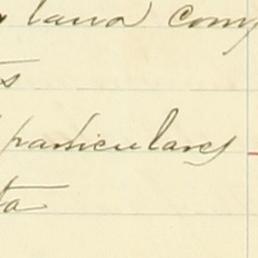 land com
particulars
ta